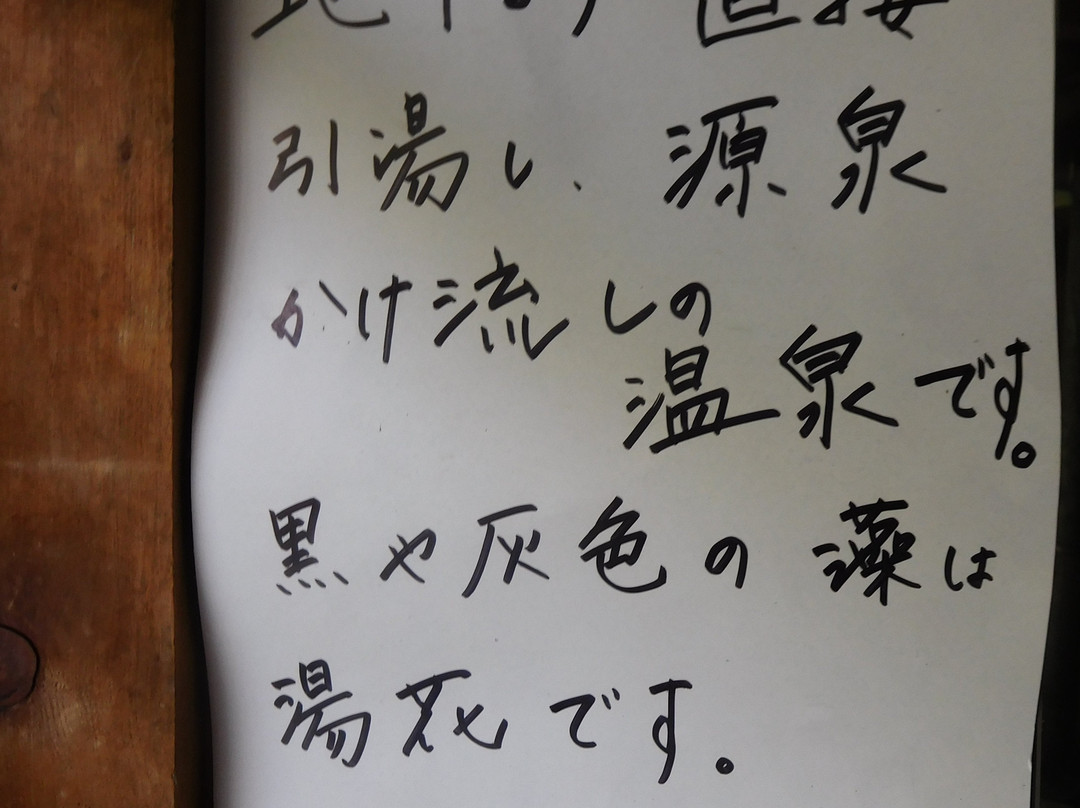 地下より直接
引湯し、源泉
かけ流しの
温泉です。
黒や灰色の藻は
湯花です。